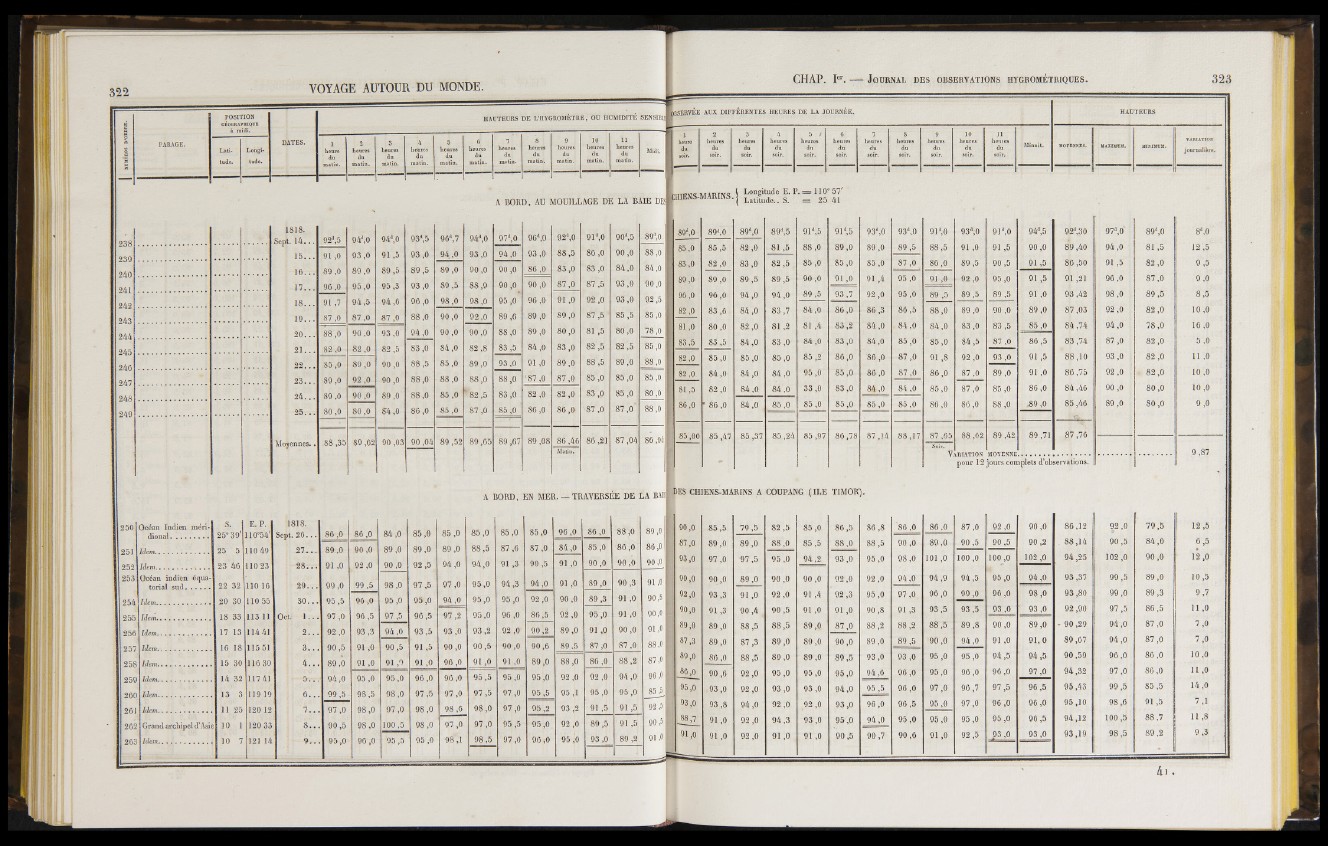 322
VOYAGE AUTOUR DU MONDE.
NUMÉROS D'ORDRE.
PARAGE.
POSITION GÉOGRAPHIQUE à midi.
Lati-tude.
Longi-tude.
DATES.
HAUTEURS DE L'HYGROMÈTRE, OU HUMIDITÉ
1 heure du matin.
2 heures du matin.
3 heures du matin.
4 heures du matin.
5 heures du matin.
6 heures du matin.
7 heures du matin.
8 heures du matin.
9 heures du matin.
10 heures du matin.
11 heures du matin.
Midi.
A BORD, AU MOUILLAGE DE LA BAIE DES
1818.
238 Sept. 14... 92d,5 94d,0 94d,0 93d,5 96d,7 94d,0 97d,0 96d,0 92d,0 91d,0 90d,5 89d,0
239 15... 91 ,0 93 ,0 91 ,5 93 ,0 94 ,0 93 ,0 94 ,0 93 ,0 88 ,5 86 ,0 90 ,0 88 ,0
240 16... 89 ,0 89 ,0 89 ,5 89 ,5 89 ,0 90 ,0 90 ,0 86 ,0 85 ,0 83 ,0 84 ,0 84 ,0
241 17... 96 ,0 95 ,0 95 ,3 93 ,0 89 ,5 88 ,0 90 ,0 90 ,0 87 ,0 87 ,5 93 ,0 90 ,0
242 18... 91 ,7 94 ,5 94 ,0 96 ,0 98 ,0 98 ,0 95 ,0 96 ,0 91 ,0 92 ,0 93 ,0 92 ,5
243 19... 87 ,0 87 ,0 87 ,0 88 ,0 90 ,0 92 ,0 89 ,0 89 ,0 89 ,0 87 ,5 85 ,5 85 ,0
244 20... 88 ,0 90 ,0 93 ,0 94 ,0 90 ,0 90 ,0 88 ,0 89 ,0 80 ,0 81 ,5 80 ,0 78 ,0
245 21... 82 ,0 82 ,0 82 ,5 83 ,0 84 ,0 82 ,8 83 ,5 84 ,0 83 ,0 82 ,5 82 ,5 85 ,0
246 22... 85 ,0 89 ,0 90 ,0 88 ,5 85 ,0 89 ,0 93 ,0 91 ,0 89 ,0 88 ,5 89 ,0 88 ,0
247 23... 89 ,0 92 ,0 90 ,0 88 ,0 88 ,0 88 ,0 88 ,0 87 ,0 87 ,0 85 ,0 85 ,0 85 ,0
248 24... 89 ,0 90 ,0 89 ,0 88 ,0 85 ,0 82 ,5 83 ,0 82 ,0 82 ,0 83 ,0 85 ,0 80 ,0
249 25... 80 ,0 80 ,0 84 ,0 86 ,0 85 ,0 87 ,0 85 ,0 86 ,0 86 ,0 87 ,0 87 ,0 88 ,0
Moyennes.. 88 ,35 89 ,62 90 ,03 90 ,04 89 ,52 89 ,65 89 ,67 89 ,08 86 ,46 86 ,21 87 ,04
Matin.
A BORD, EN MER. — TRAVERSÉE DE LA BAIE
S. E. P. 1818.
250 Océan Indien méri-dional 25° 39' 110°54' Sept. 26... 86 ,0 86 ,0 84 ,0 85 ,0 85 ,0 85 ,0 85 ,0 85 ,0 96 ,0 86 ,0 88 ,0 89 ,0
251 Idem 25 5 110 49 27... 89 ,0 90 ,0 89 ,0 89 ,0 89 ,0 88 ,5 87 ,6 87 ,0 84 ,0 85 ,0 86 ,0 86 ,0
252 Idem 23 46 110 23 28... 91 ,0 92 ,0 90 ,0 92 ,5 94 ,0 94 ,0 91 ,3 90 ,5 91 ,0 90 ,0 90 ,0 90 ,0
253 Océan indien équa-torial sud 22 32 110 16 29... 99 ,0 99 ,5 98 ,0 97 ,5 97 ,0 95 ,0 94 ,3 94 ,0 91 ,0 89 ,0 90 ,3 91 ,0
254 Idem 20 30 110 55 30... 95 ,5 96 ,0 95 ,0 95 ,0 94 ,0 95 ,0 95 ,0 92 ,0 90 ,0 89 ,3 91 ,0 90 ,5
255 Idem 18 35 113 11 Oct. 1... 97 ,0 96 ,5 97 ,5 96 ,5 97 ,2 95 ,0 96 ,0 86 ,5 92 ,0 95 ,0 91 ,0 90 ,0
256 Idem 17 13 114 41 2... 92 ,0 93 ,3 94 ,0 93 ,5 93 ,0 93 ,2 92 ,0 90 ,2 89 ,0 91 ,0 90 ,0 91 ,0
257 Idem 16 18 115 51 3... 90 ,5 91 ,0 90 ,5 91 ,5 90 ,0 90 ,5 90 ,0 90 ,6 89 ,5 87 ,0 87 ,0 88 ,0
258 Idem 15 30 116 30 4... 89 ,0 91 ,0 91 ,0 91 ,0 96 ,0 91 ,0 91 ,0 89 ,0 88 ,0 86 ,0 88 ,2 87 ,0
259 Idem 14 32 117 41 5... 94 ,0 95 ,0 95 ,0 96 ,0 96 ,0 95 ,5 95 ,0 95 ,0 92 ,0 92 ,0 94 ,0 96 ,0
260 Idem 13 3 119 19 6... 99 ,5 98 ,5 98 ,0 97 ,5 97 ,0 97 ,5 97 ,0 95 ,5 95 ,1 95 ,0 95 ,0 85 ,5
261 Idem 11 25 120 12 7... 97 ,0 98 ,0 97 ,0 98 ,0 98 ,6 98 ,0 97 ,0 95 ,2 93 ,2 91 ,5 91 ,5 92 ,5
262 Grand archipel d'Asie 10 1 120 33 8... 90 ,5 98 ,0 100 ,5 98 ,0 97 ,0 97 ,0 95 ,5 95 ,0 92 ,0 89 ,5 91 ,5 90 ,5
263 Idem 10 7 121 14 9... 95 ,0 96 ,0 95 ,5 95 ,0 98 ,1 98 ,5 97 ,0 96 ,0 95 ,0 93 ,0 89 ,2 91 ,0
CHAP. Ier. — JOURNAL DES OBSERVATIONS HYGROMÉTRIQUES.
323
OBSERVÉE AUX DIFFÉRENTES HEURES DE LA JOURNÉE.
HAUTEURS
1 heure du soir.
2 heures du soir.
3 heures du soir.
4 heures du soir.
5 heures du soir.
6 heures du soir.
7 heures du soir.
8 heures du soir.
9 heures du soir.
10 heures du soir.
11 heures du soir.
Minuit.
MOYENNES.
MAXIMUM.
MINIMUM.
VARIATION journalière.
CHIENS-MARINS. Longitude E. P. = 110° 57'
Latitude.. S. = 25 41
89d,0 89d,0 89d,0 89d,5 91d,5 91d,5 93d,0 93d,0 91d,0 93d,0 91d,0 94d,5 92d,30 97d,0 89d,0 8d,0
85 ,0 85 ,5 82 ,0 81 ,5 88 ,0 89 ,0 89 ,0 89 ,5 88 ,5 91 ,0 91 ,5 90 ,0 89 ,40 94 ,0 81 ,5 12 ,5
83 ,0 82 ,0 83 ,0 82 ,5 85 ,0 85 ,0 85 ,0 87 ,0 86 ,0 89 ,5 90 ,5 91 ,5 86 ,50 91 ,5 82 ,0 9 ,5
89 ,0 89 ,0 89 ,5 89 ,5 90 ,0 91 ,0 91 ,4 95 ,0 91 ,0 92 ,0 95 ,0 91 ,5 91 ,21 96 ,0 87 ,0 9 ,0
96 ,0 96 ,0 94 ,0 94 ,0 89 ,5 93 ,7 92 ,0 95 ,0 89 ,5 89 ,5 89 ,5 91 ,0 93 ,42 98 ,0 89 ,5 8 ,5
82 ,0 83 ,6 84 ,0 83 ,7 84 ,0 86 ,0 86 ,3 86 ,5 88 ,0 89 ,0 90 ,0 89 ,0 87 ,03 92 ,0 82 ,0 10 ,0
81 ,0 80 ,0 82 ,0 81 ,2 81 ,4 83 ,2 84 ,0 84 ,0 84 ,0 83 ,0 83 ,5 85 ,0 84 ,74 94 ,0 78 ,0 16 ,0
83 ,5 83 ,5 84 ,0 83 ,0 84 ,0 83 ,0 84 ,0 85 ,0 85 ,0 84 ,5 87 ,0 86 ,5 83 ,74 87 ,0 82 ,0 5 ,0
82 ,0 85 ,0 85 ,0 85 ,0 85 ,2 86 ,0 86 ,0 87 ,0 91 ,8 92 ,0 93 ,0 91 ,5 88 ,10 93 ,0 82 ,0 11 ,0
82 ,0 84 ,0 84 ,0 84 ,0 95 ,0 85 ,0 86 ,0 87 ,0 86 ,0 87 ,0 89 ,0 91 ,0 86 ,75 92 ,0 82 ,0 10 ,0
81 ,5 82 ,0 84 ,0 84 ,0 83 ,0 83 ,0 84 ,0 84 ,0 85 ,0 87 ,0 85 ,0 86 ,0 84 ,46 90 ,0 80 ,0 10 ,0
86 ,0 86 ,0 84 ,0 85 ,0 85 ,0 85 ,0 85 ,0 85 ,0 86 ,0 86 ,0 88 ,0 89 ,0 85 ,46 89 ,0 80 ,0 9 ,0
85 ,00 85 ,47 85 ,37 85 ,24 85 ,97 86 ,78 87 ,14 88 ,17 87 ,65 88 ,62 89 ,42 89 ,71 87 ,76
Soir.
VARIATION MOYENNE 9 ,87
pour 12 jours complets d'observations.
DES CHIENS-MARINS A COUPANG (ILE TIMOR).
90 ,0 85 ,5 79 ,5 82 ,5 85 ,0 86 ,5 86 ,8 86 ,0 86 ,0 87 ,0 92 ,0 90 ,0 86 ,12 92 ,0 79 ,5 12 ,5
87 ,0 89 ,0 89 ,0 88 ,0 85 ,5 88 ,0 88 ,5 90 ,0 89 ,0 90 ,5 90 ,5 90 ,2 88 ,14 90 ,5 84 ,0 6 ,5
95 ,0 97 ,0 97 ,5 95 ,0 94 ,2 93 ,0 95 ,0 98 ,0 101 ,0 100 ,0 100 ,0 102 ,0 94 ,25 102 ,0 90 ,0 12 ,0
90 ,0 90 ,0 89 ,0 90 ,0 90 ,0 92 ,0 92 ,0 94 ,0 94 ,0 94 ,5 95 ,0 94 ,0 93 ,37 99 ,5 89 ,0 10 ,5
92 ,0 93 ,3 91 ,0 92 ,0 91 ,4 92 ,3 95 ,0 97 ,0 96 ,0 99 ,0 96 ,0 98 ,0 93 ,80 99 ,0 89 ,3 9 ,7
90 ,0 91 ,3 90 ,4 90 ,5 91 ,0 91 ,0 90 ,8 91 ,3 93 ,5 93 ,5 93 ,0 93 ,0 92 ,90 97 ,5 86 ,5 11 ,0
89 ,0 89 ,0 88 ,5 88 ,5 89 ,0 87 ,0 88 ,2 88 ,2 88 ,5 89 ,8 90 ,0 89 ,0 90 ,29 94 ,0 87 ,0 7 ,0
87 ,3 89 ,0 87 ,3 89 ,0 89 ,0 90 ,0 89 ,0 89 ,5 90 ,0 94 ,0 91 ,0 91 ,0 89 ,67 94 ,0 87 ,0 7 ,0
89 ,0 86 ,0 88 ,5 89 ,0 89 ,0 89 ,5 93 ,0 93 ,0 95 ,0 95 ,0 94 ,5 94 ,5 90 ,50 96 ,0 86 ,0 10 ,0
86 ,0 90 ,6 92 ,0 95 ,0 95 ,0 95 ,0 94 ,6 96 ,0 95 ,0 96 ,0 96 ,0 97 ,0 94 ,32 97 ,0 86 ,0 11 ,0
95 ,0 93 ,0 92 ,0 93 ,0 93 ,0 94 ,0 95 ,5 96 ,0 97 ,0 96 ,7 97 ,5 96 ,5 95 ,43 99 ,5 85 ,5 14 ,0
93 ,0 93 ,8 94 ,0 92 ,0 92 ,0 93 ,0 96 ,0 96 ,5 95 ,0 97 ,0 96 ,0 96 ,0 95 ,10 98 ,6 91 ,5 7 ,1
88 ,7 91 ,0 92 ,0 94 ,3 93 ,0 95 ,0 94 ,0 95 ,0 95 ,0 95 ,0 95 ,0 96 ,5 94 ,12 100 ,5 88 ,7 11 ,8
91 ,0 91 ,0 92 ,0 91 ,0 91 ,0 90 ,5 90 ,7 90 ,6 91 ,0 92 ,5 93 ,0 93 ,0 93 ,19 98 ,5 89 ,2 9 ,3
41.